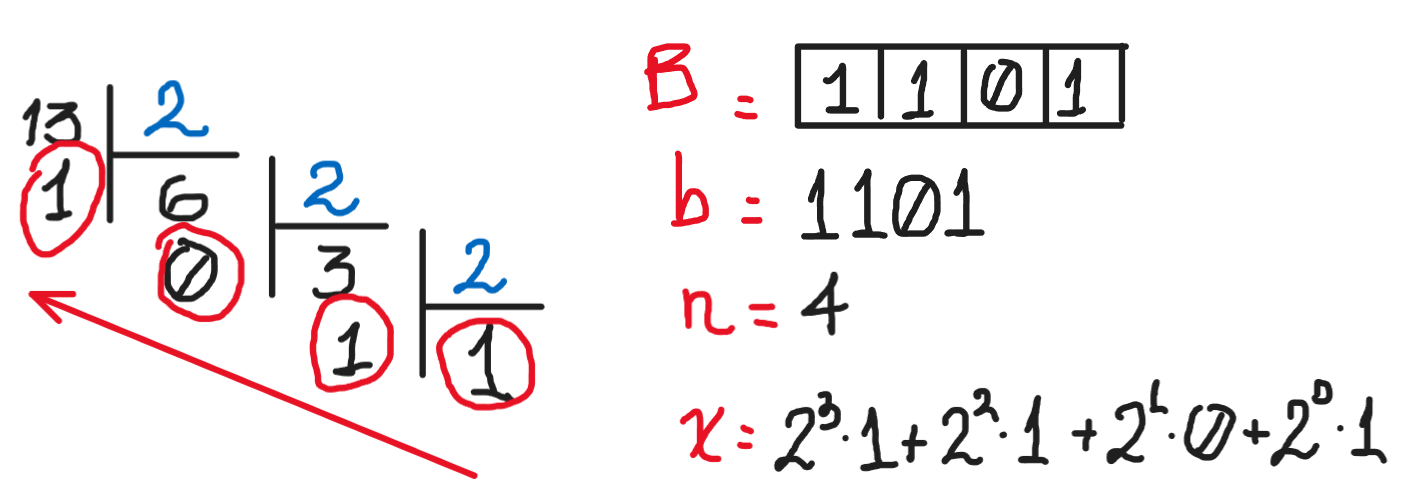 13 2
1 6 2
0 3 2
1 1
B = 1 1 0 1
b = 1101
n = 4
x = 2³·1 + 2²·1 + 2¹·0 + 2⁰·1